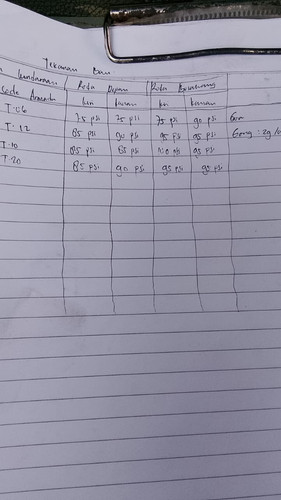 Tekanan Ban
Kendaraan Roda Depan Roda Belakang
Code Armada kiri kanan kiri kanan
T-06 75 psi 75 psi 75 psi 90 psi
T-12 85 psi 90 psi 95 psi 95 psi
T-10 85 psi 85 psi 100 psi 95 psi
T-20 85 psi 90 psi 95 psi 90 psi